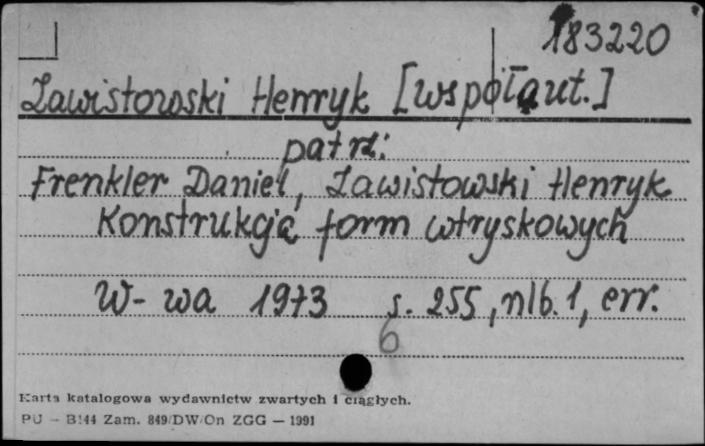 183220
Zawistowski Henryk [współaut.]
patrz:
Frenkler Daniel, Zawistowski Henryk
Konstrukcja form wtryskowych
W-wa 1973 s. 255, nlb. 1, err.
6
Karta katalogowa wydawnictw zwartych i ciągłych.
PU - B144 Zam. 849/DW/On ZGG — 1991